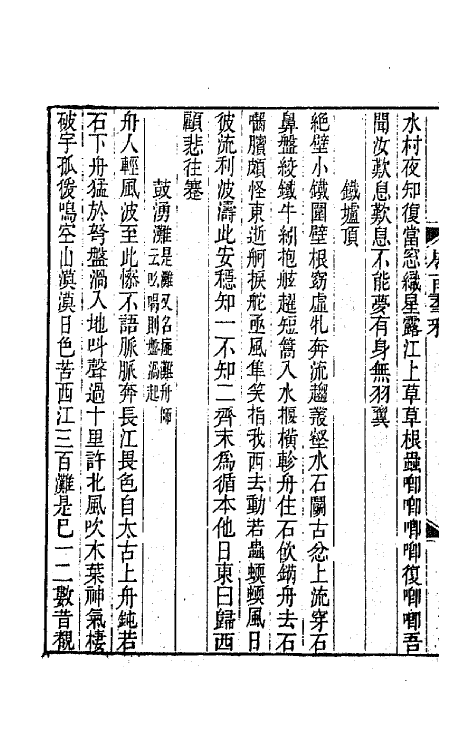 水村夜知復當怱織星露江上草草根蟲唧唧唧唧復唧唧吾
聞汝歎息歎息不能夢有身無羽翼
鐵壚頂
絶壁小鐵圍壁根竅虛牝奔流趨叢壑水石鬭古忿上流穿石
鼻盤絞鐵牛紖抱舷趨短篙入水摳橫軫舟住石欲鎊舟去石
嚙臏頗怪東逝舸捩舵亟風隼笑指我西去動若蟲蝡蝡風日
彼流利波濤此安穩知一不知二齊末爲循本他日東曰歸西
顧悲往蹇
鼓湧灘是灘又名瘂灘舟師云吆喝則盤渦起
舟人輕風波至此慘不語脈脈奔長江畏色自太古上舟鈍若
石下舟猛於弩盤渦入地呌聲過十里許北風吹木葉神氣棲
破宇孤猨鳴空山漠漠日色苦西江三百灘是巳一二數昔觀